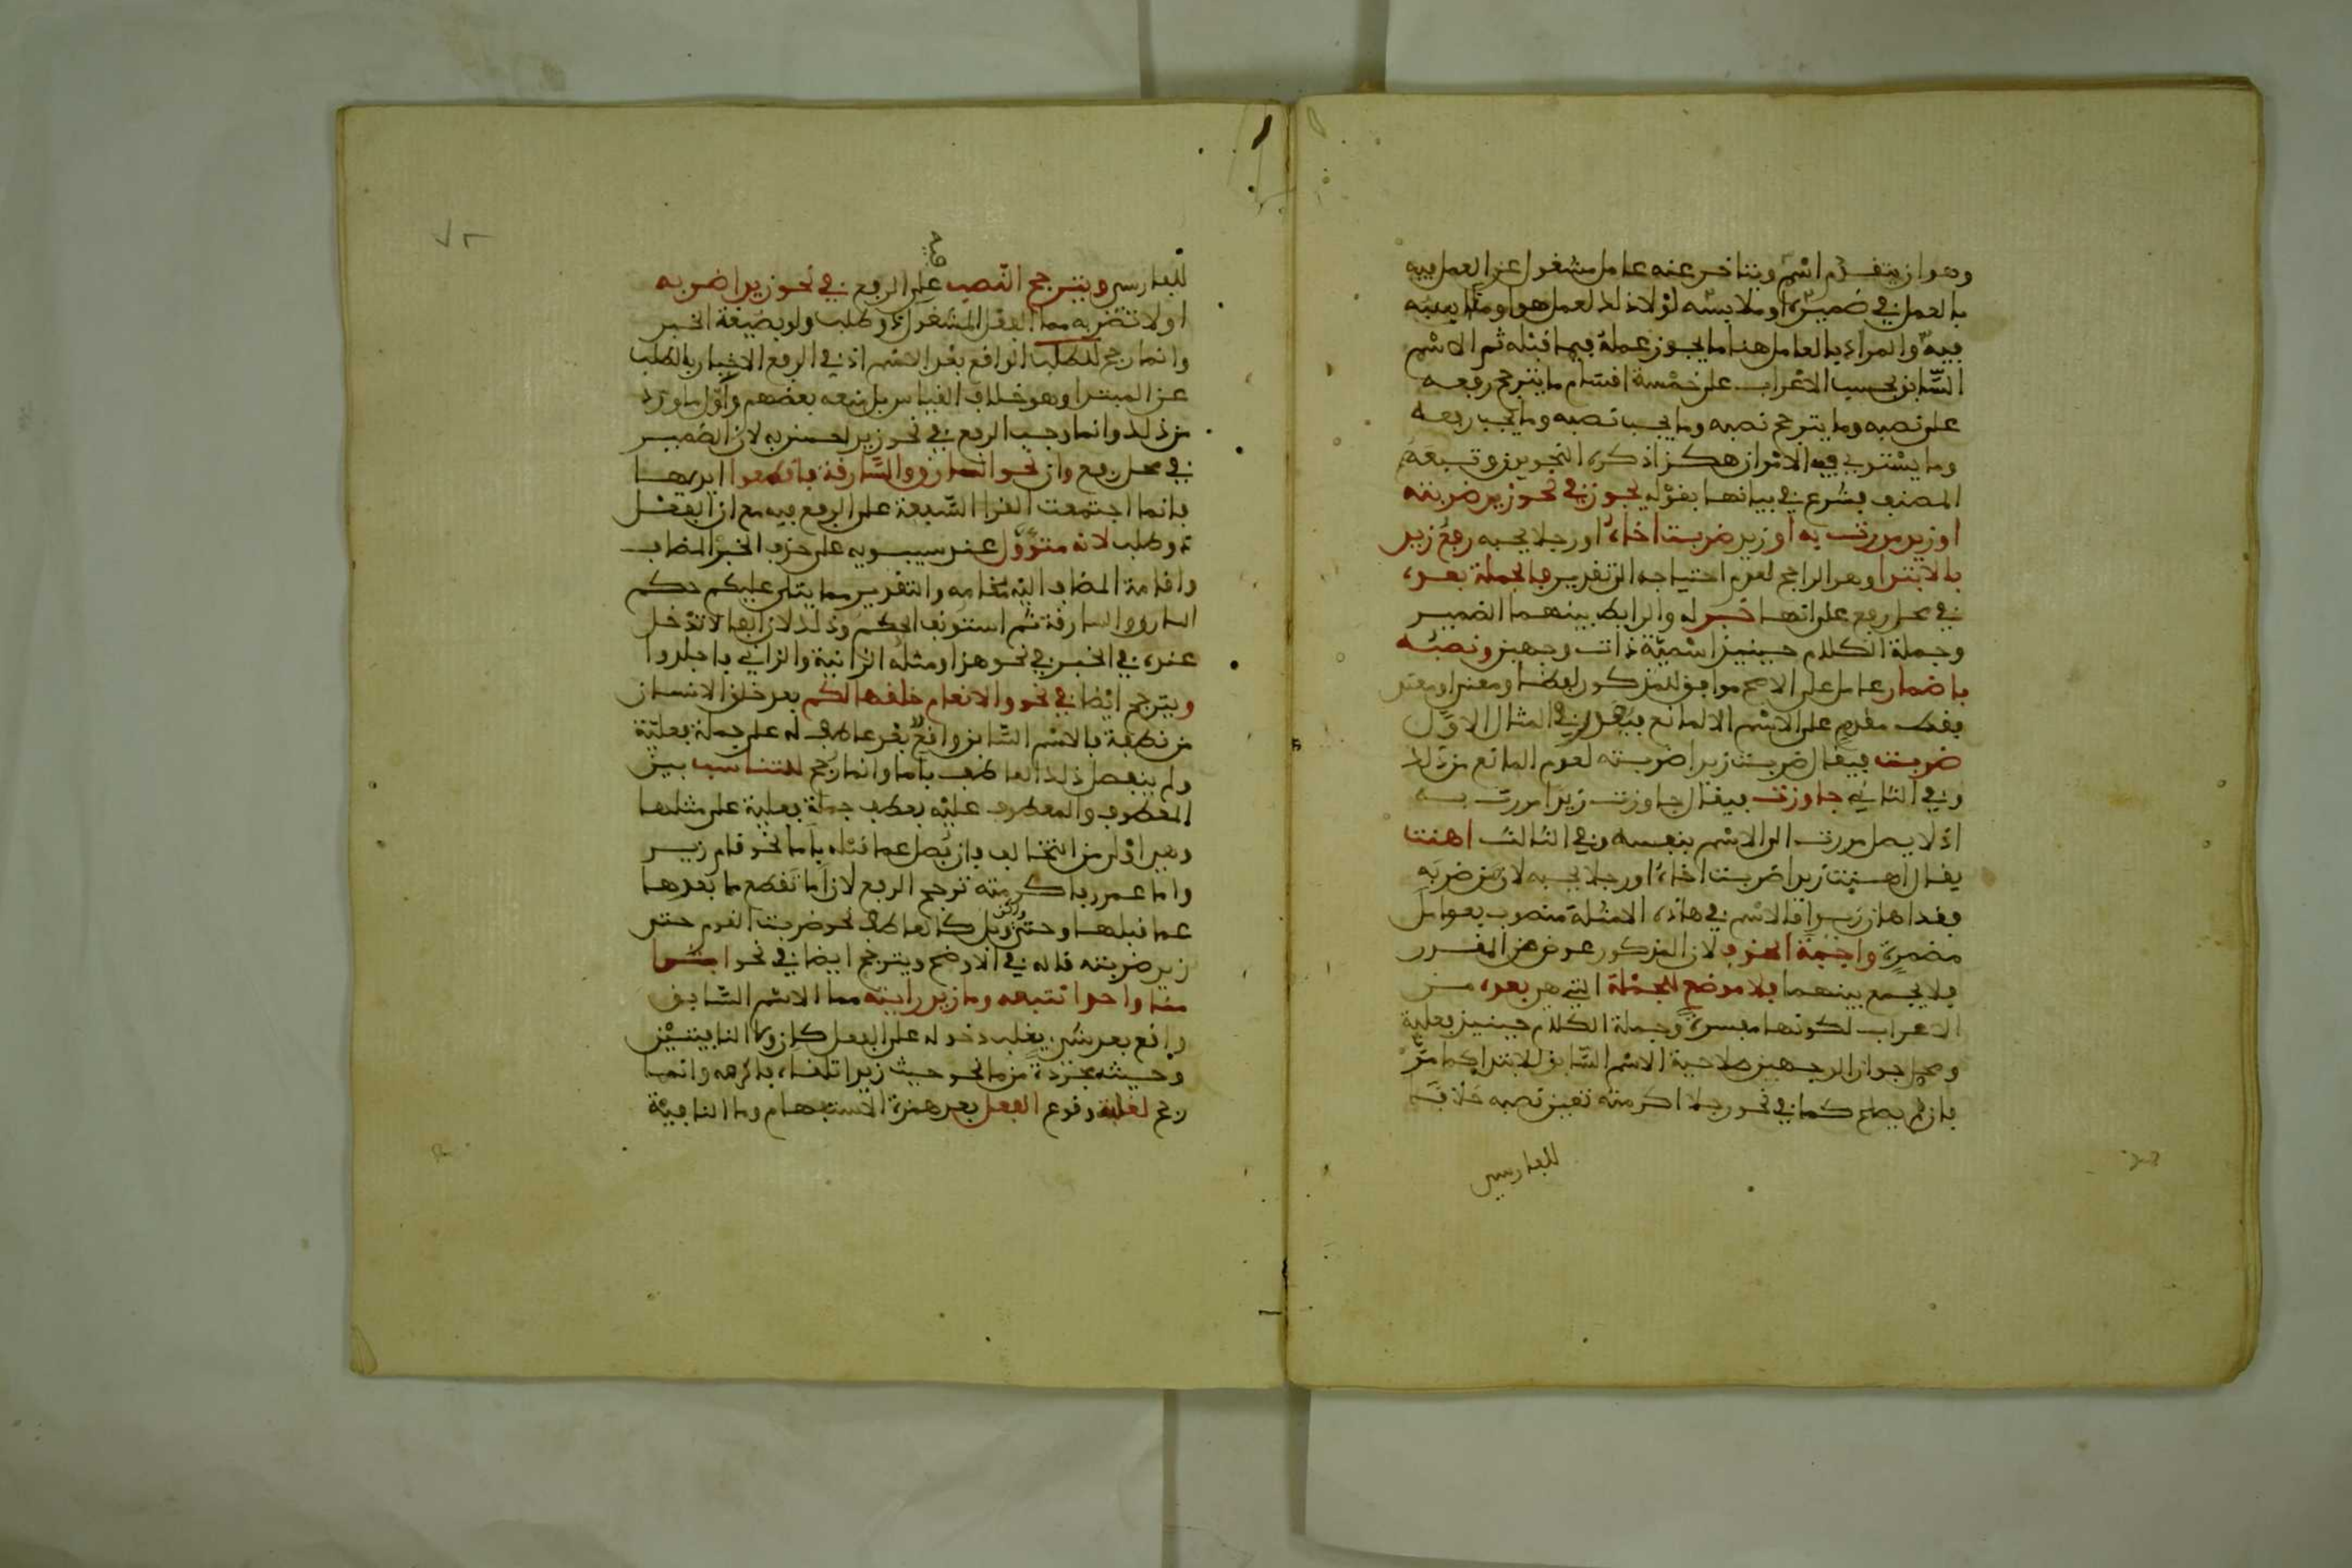 وهو ان يتقدم اسم ويتاخر عنه عامل مشغول عن العمل فيه
بالعمل في ضميره او ملابسه لولا ذلك لعمل هو او مناسبه
فيه والمراد بالعامل هنا ما يجوز عمله فيما قبله ثم الاسم
السابق بحسب الاعراب على خمسة اقسام ما يترجح رفعه
على نصبه وما يترجح نصبه وما يجب نصبه وما يجب رفعه
وما يستوي فيه الامران هكذا ذكره النحويون وتبعهم
المصنف فشرع في بيانها بقوله يجوز في نحو زيد ضربته
او زيد مررت به او زيد ضربت اخاه او رجلا يحبه رفع زيد
بالابتدا وهو الراجح لعدم احتياجه الى تقدير فالجملة بعده
في محل رفع على انها خبر له والرابط بينهما الضمير
وجملة الكلام حينئذ اسمية ذات وجهين ونصبه
باضمار عامل على الاصح موافق للمذكور لفظا ومعنى او معنى
فقط مقدم على الاسم الا لمانع فيقدر في المثال الاول
ضربت فيقال ضربت زيدا ضربته لعدم المانع من ذلك
وفي الثاني جاوزت فيقال جاوزت زيدا مررت به
اذ لا يصل مررت الى الاسم بنفسه وفي الثالث اهنت
يقال اهنت زيدا ضربت اخاه او رجلا يحبه لان من ضربه
فقد اهان زيدا فالاسم في هاذه الامثلة منصوب بعوامل
مضمرة واجبة الحذف لان المذكور عوض عن المقدر
فلا يجمع بينهما فلا موضع للجملة التي هي بعده من
الاعراب لكونها مفسرة وجملة الكلام حينئذ فعلية
ومحل جواز الوجهين صلاحية الاسم السابق للابتدا كما مر
فان لم يصلح كما في نحو رجلا اكرمته تعين نصبه خلافا
للفارسي
للفارسي ويترجح النصب على الرفع في نحو زيدا اضربه
فيه
او لا تضربه مما الفعل المشغول ذو طلب ولو بصيغة الخبر
وانما رجح للطلب الواقع بعد الاسم اذ في الرفع الاخبار بالطلب
عن المبتدا وهو خلاف القياس بل منعه بعضهم واول ما ورد
من ذلك وانما وجب الرفع في نحو زيد احسن به لان الضمير
في محل رفع وان نحو السارق والسارقة فاقطعوا ايديهما
فانما اجتمعت القرا السبعة على الرفع فيه مع ان الفعل
ذو طلب لانه متؤول عند سيبويه على حذف الخبر المضاف
واقامة المضاف اليه مقامه والتقدير مما يتلى عليكم حكم
السارق والسارقة ثم استونف الحكم وذلك لان الفا لا تدخل
عنده في الخبر في نحو هذا ومثله الزانية والزاني فاجلدوا
ويترجح ايضا في نحو والانعام خلقها لكم بعد خلق الانسان
من نطفة فالاسم السابق واقع بعد عاطف له على جملة فعلية
ولم ينفصل ذلك العاطف باما وانما رجح للتناسب بين
المعطوف والمعطوف عليه بعطف جملة فعلية على مثلها
وهي اولى من التخالف فان فصل عما قبله باما نحو قام زيد
واما عمرو فاكرمته ترجح الرفع لان اما تقطع ما بعدها
عما قبلها وحتى ولكن وبل كالعاطف نحو ضربت القوم حتى
زيد ضربته قاله في الاوضح ويترجح ايضا في نحو ابشرا
منا واحدا نتبعه وما زيدا رايته مما الاسم السابق
واقع بعد شيء يغلب دخوله على الفعل كان وما النافيتين
وحيث مجردة من ما نحو حيث زيدا تلقاه فاكرمه وانما
رجح لغلبة وقوع الفعل بعد همزة الاستفهام وما النافية